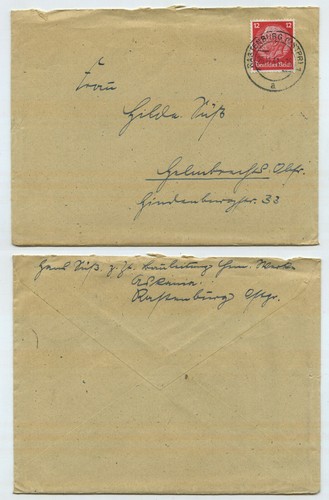 12 12
Deutsches Reich
RASTENBURG (OSTPR) 1
a
Frau
Hilde Süß
Helmbrechts Obfr.
Hindenburgstr. 33
Hans Süß z. Zt. Bauleitung
Askania
Rastenburg Ostpr.